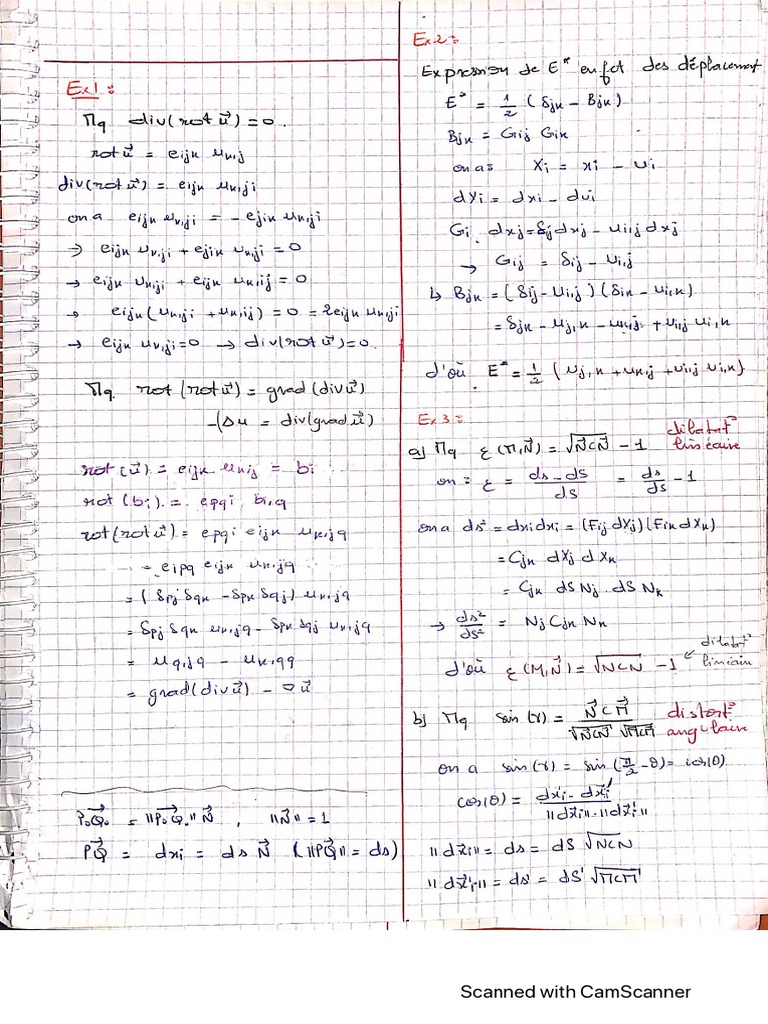 Ex1 :
Mq div(rot u⃗) = 0.
rot u⃗ = eijk uk,j
div(rot u⃗) = eijk uk,ji
on a eijk uk,ji = - ejik uk,ji
→ eijk uk,ji + ejik uk,ji = 0
→ eijk uk,ji + eijk uk,ij = 0
→ eijk (uk,ji + uk,ij) = 0 = 2eijk uk,ji
→ eijk uk,ji = 0 → div(rot u⃗) = 0.
Mq. rot (rot u⃗) = grad (div u⃗)
-(Δu = div(grad u⃗)
rot (u⃗) = eijk uk,j = bi
rot (bi) = epqi bi,q
rot(rot u⃗) = epqi eijk uk,jq
= eipq eijk uk,jq
= (δpj δqk - δpk δqj) uk,jq
= δpj δqk uk,jq - δpk δqj uk,jq
= uq,jq - uk,qq
= grad(div u⃗) - ▽u⃗
P₀Q₀⃗ = ||P₀Q₀⃗|| N⃗ , ||N⃗|| = 1
PQ⃗ = dxi = ds N⃗ (||PQ⃗|| = ds)
Ex2 :
Expression de E* en fct des déplacement
E* = 1/2 (δjk - Bjk)
Bjk = Gij Gik
on a : Xi = xi - ui
dXi = dxi - dui
Gi dxj = δij dxj - ui,j dxj
→ Gij = δij - ui,j
↳ Bjk = (δij - ui,j) (δik - ui,k)
= δjk - uj,k - uk,j + ui,j ui,k
d'où E* = 1/2 (uj,k + uk,j + ui,j ui,k)
Ex3 :
a) Mq ε(M,N⃗) = √N⃗CN⃗ - 1 dilatat° linéaire
on : ε = ds - dS / dS = ds/dS - 1
on a ds² = dxi dxi = (Fij dXj) (Fik dXk)
= Cjk dXj dXk
= Cjk dS Nj . dS Nk
→ ds²/dS² = Nj Cjk Nk
d'où ε(M,N⃗) = √NCN - 1 ← dilatat° linéair
b) Mq sin(γ) = N⃗CM⃗ / √N⃗CN⃗ √M⃗CM⃗ distort° angulaire
on a sin(γ) = sin(π/2 - θ) = cos(θ)
cos(θ) = dx⃗i . dx⃗i' / ||dx⃗i|| . ||dx⃗i'||
||dx⃗i|| = ds = dS √NCN
||dx⃗i'|| = ds' = dS' √MCM
Scanned with CamScanner